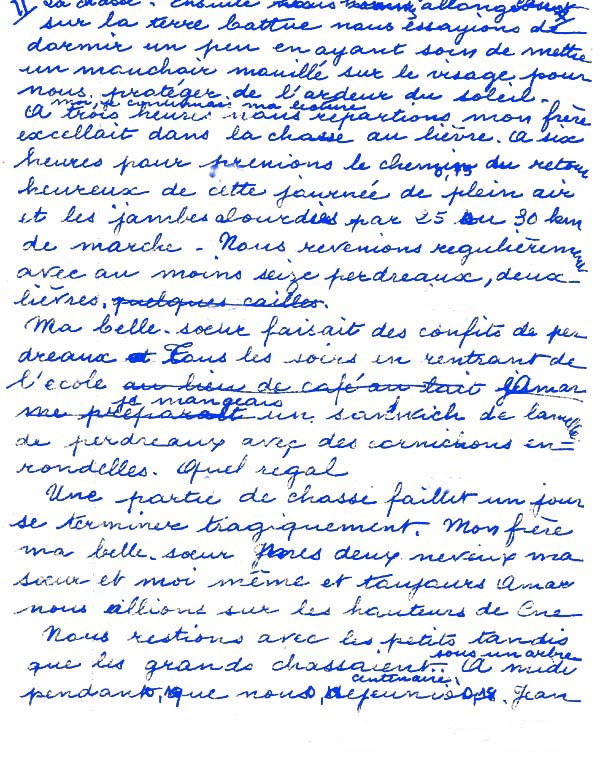 11 la chasse. ensuite nous allongeant
sur la terre battue nous essayions de
dormir un peu en ayant soin de mettre
un mouchoir mouillé sur le visage pour
nous protéger de l'ardeur du soleil.
moi, je continuais ma lecture
A trois heures nous repartions mon frère
excellait dans la chasse au lièvre. A six
heures pour prenions le chemin du retour
heureux de cette journée de plein air
et les jambes alourdies par 25 ou 30 km
de marche - Nous revenions regulièrement
avec au moins seize perdreaux, deux-
lièvres. quelques cailles.
Ma belle-sœur faisait des confits de per
dreaux et Tous les soirs en rentrant de
l'école au lieu de café au lait Amar
je mangeais
me préparait un sandwich de
de perdreaux avec des cornichons en=
rondelles. Quel regal
Une partie de chasse faillet un jour
se terminer tragiquement. Mon frère
ma belle-sœur mes deux neveux ma
sœur et moi même et toujours Amar
nous allions sur les hauteurs de Cne
Nous restions avec les petits tandis
sous un arbre
que les grands chassaient. A midi
centenaire.
pendant que nous dejeunions. Jean